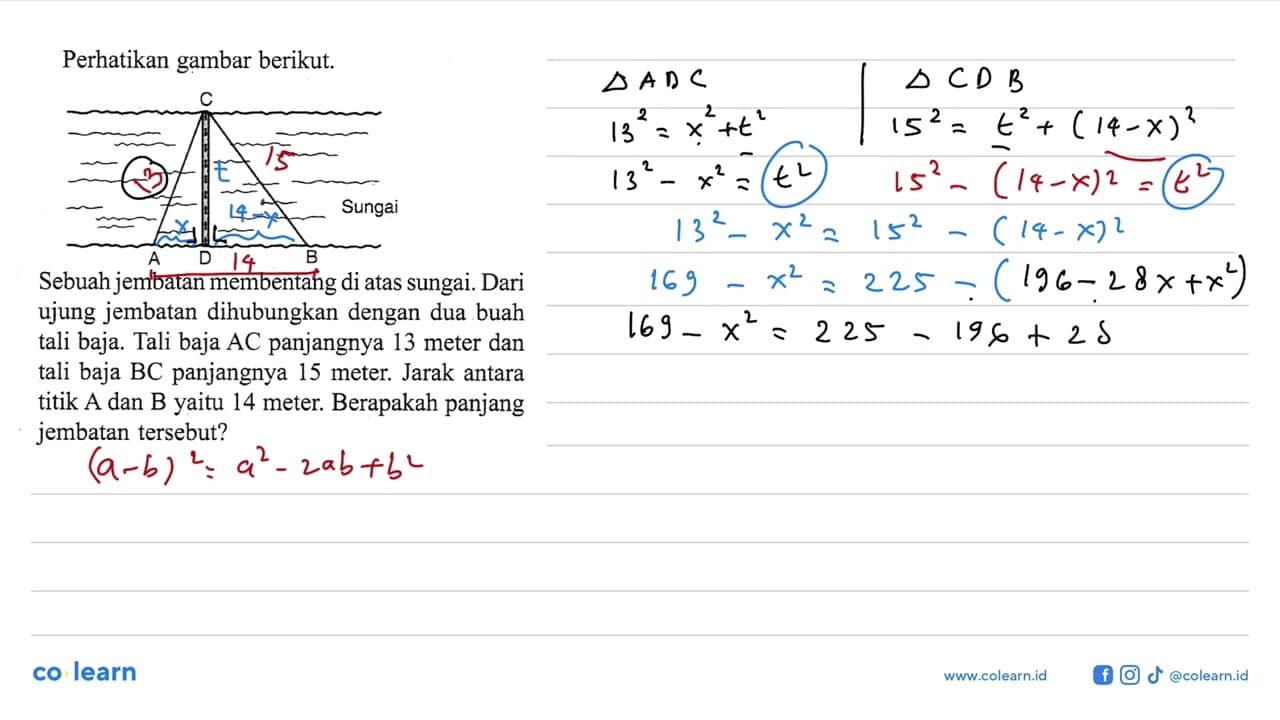 Perhatikan gambar berikut.
C
13
t
15
x
14-x
Sungai
A D 14 B
Sebuah jembatan membentang di atas sungai. Dari
ujung jembatan dihubungkan dengan dua buah
tali baja. Tali baja AC panjangnya 13 meter dan
tali baja BC panjangnya 15 meter. Jarak antara
titik A dan B yaitu 14 meter. Berapakah panjang
jembatan tersebut?
(a-b)² = a² - 2ab + b²
Δ ADC
13² = x² + t²
13² - x² = t²
Δ CDB
15² = t² + (14-x)²
15² - (14-x)² = t²
13² - x² = 15² - (14-x)²
169 - x² = 225 - (196 - 28x + x²)
169 - x² = 225 - 196 + 28
co learn
www.colearn.id
@colearn.id